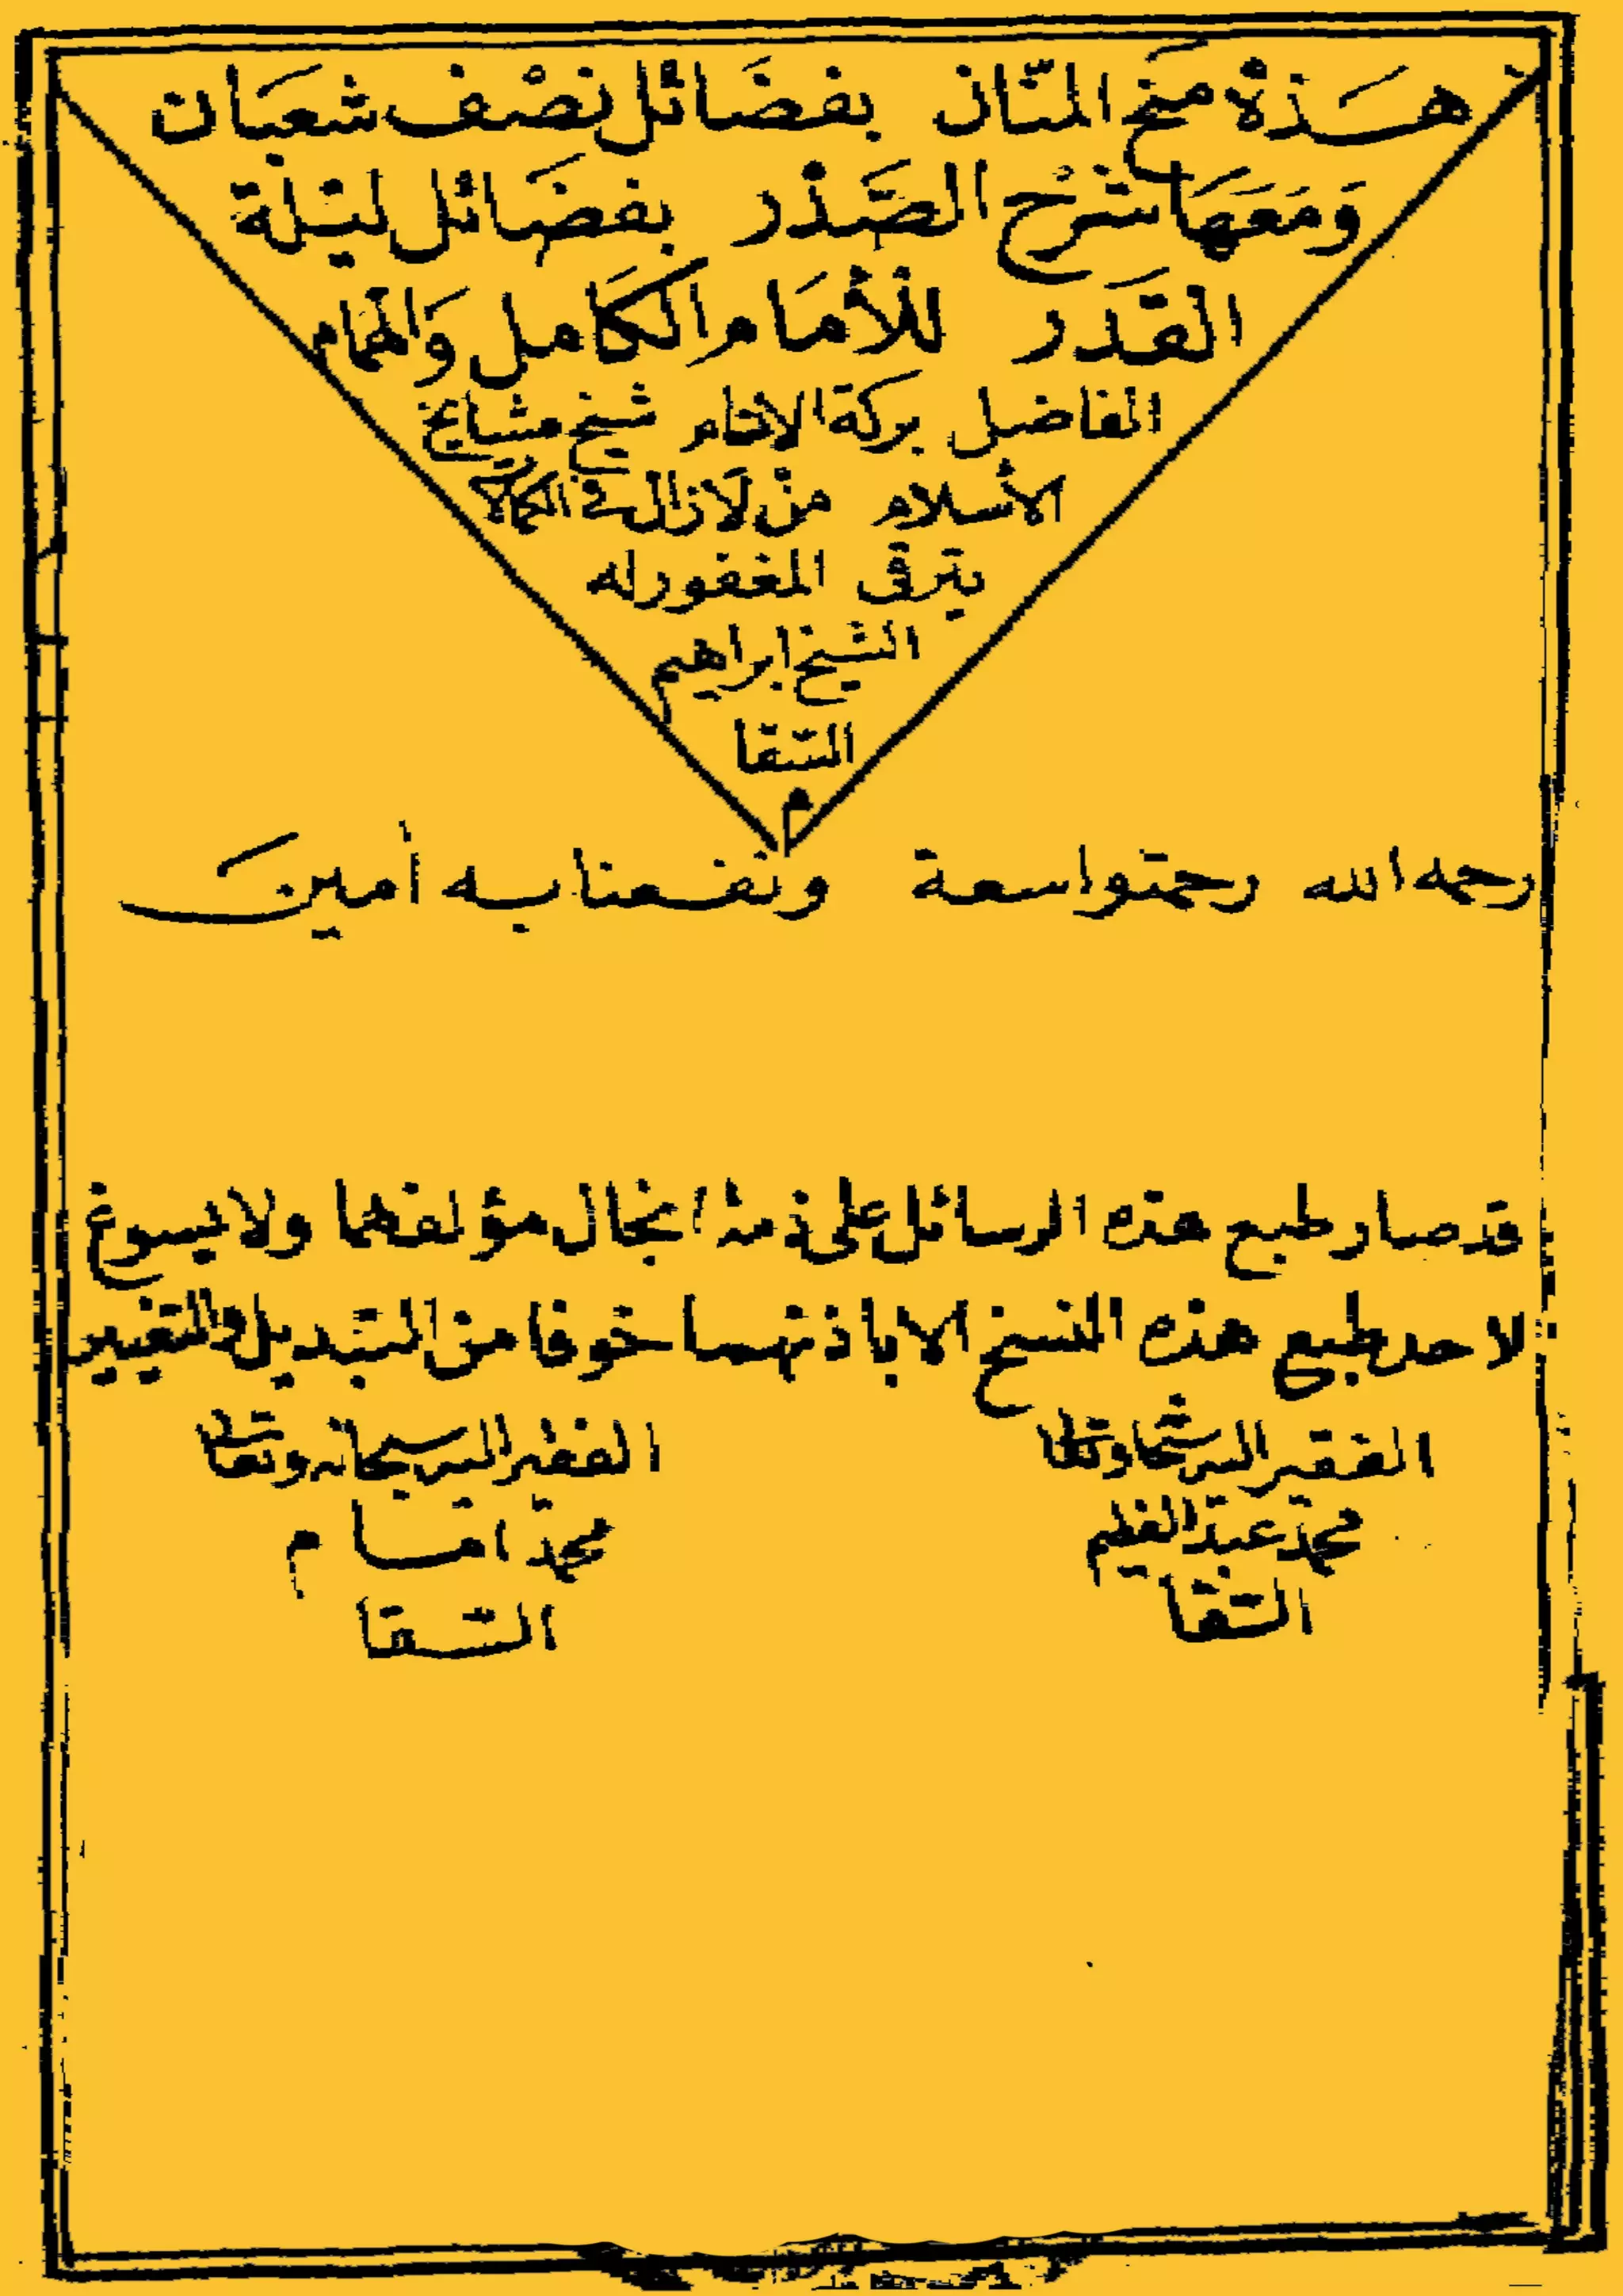 هَذِهْ مِنَح المنّان بفضَائل نصْف شعبَان
وَمَعَهَا شَرْح الصَّدْر بفضَائل ليْلة
القَدَر للأمَام الكَامل وَالهمَام
الفاضل بركة الانام شيخ مشايخ
الأسلام منْ لَازال فى الكمالات
يترقى المغفور له
الشيخ ابراهيم
السّقا
م
رحمه الله رحمتو اسعة ونفعنا به أمينَ
قد صار طبع هذه الرسائل على ذمة انجال مؤلفهما ولا يسوغ
لاحد طبع هذه النسخ الا باذنهما خوفا من التبديل والتغيير
الفقير اليه سبحانه وتعالى
محمد عبد العظيم
السّقا
الفقير اليه سبحانه وتعالى
محمد امام
السّقا